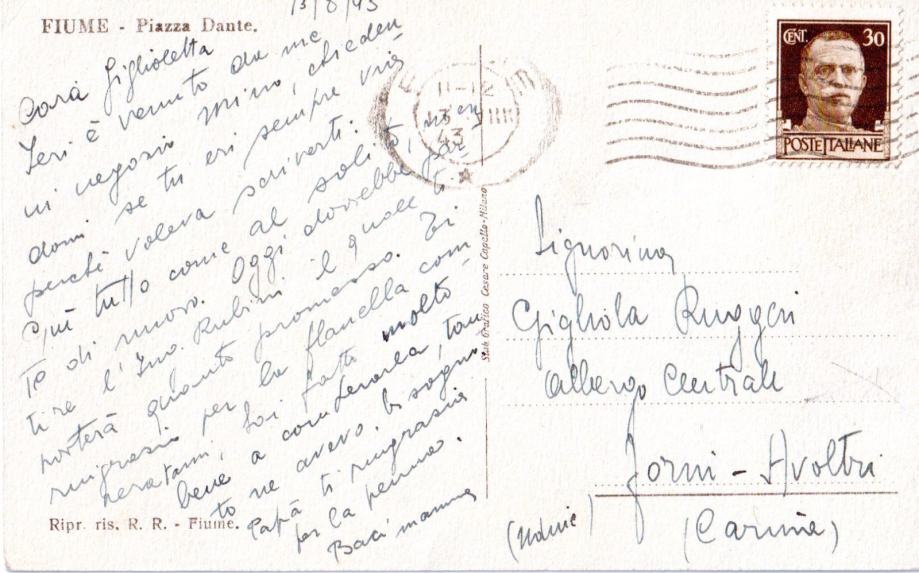 FIUME - Piazza Dante.
13/8/43
Cara Giglioletta
Ieri è venuto da me
in negozio Mino, chieden-
domi se tu eri sempre via
perchè voleva scriverti.
Qui tutto come al solito, nien-
te di nuovo. Oggi dovrebbe par-
tire l'Ing. Rubini il quale ti
porterà quanto promesso. Ti
ringrazio per la flanella com-
peratami, hai fatto molto
bene a comperarla, tan
to ne avevo bisogno
Papà ti ringrazia
per la penna.
Baci mamma
Ripr. ris. R. R. - Fiume.
Stab. Grafico Cesare Capello-Milano
43
CENT. 30
POSTE ITALIANE
Signorina
Gigliola Ruggeri
Albergo Centrale
Forni - Avoltri
(Udine)
(Carnia)